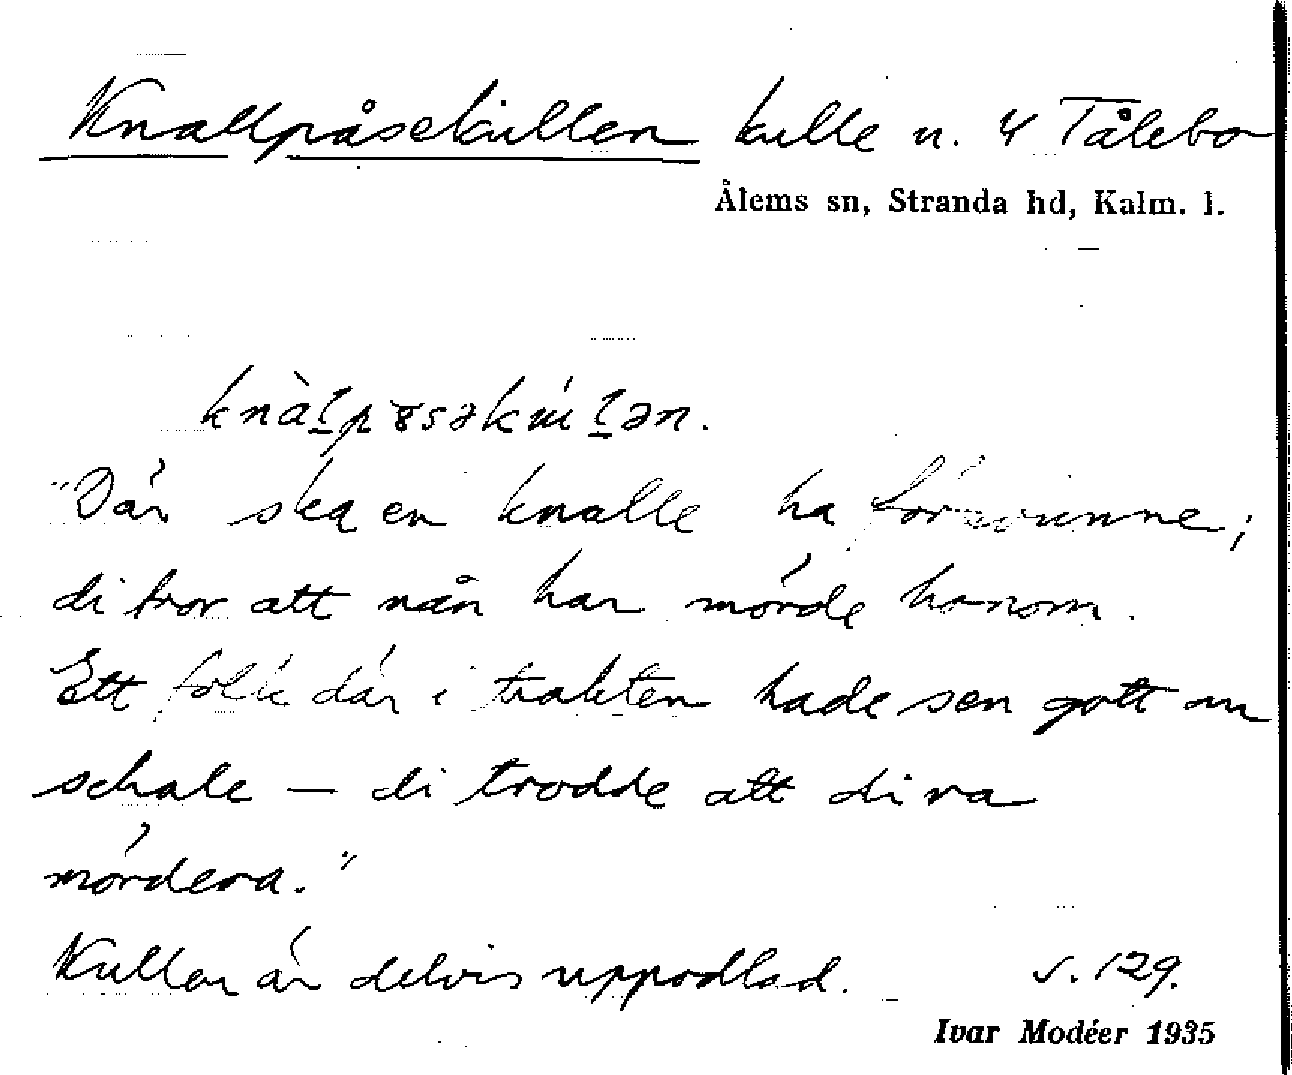 Knallpåsekullen kulle n. 4 Tålebo
Ålems sn, Stranda hd, Kalm. l.
"Där ska en knalle ha försvunne;
di tror att nån har mörde honom.
Ett folk där i trakten hade sen gott om
schale — di trodde att di va
mördera."
Kullen är delvis uppodlad. s. 129.
Ivar Modéer 1935